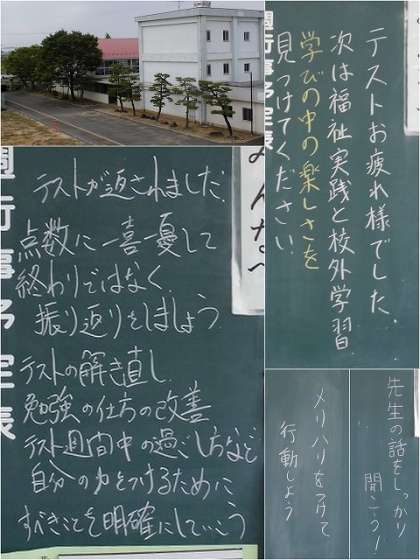 週行事予定表
みんなへ
テストが返されました。
点数に一喜一憂して
終わりではなく
振り返りをしましょう
テストの解き直し
勉強の仕方の改善
テスト週間中の過ごし方など
自分の力をつけるために
すべきことを明確にしていこう
週行事予定表
テストお疲れ様でした。
次は福祉実践と校外学習
学びの中の楽しさを
見つけてください
メリハリをつけて
行動しよう
先生の話をしっかり
聞こう!